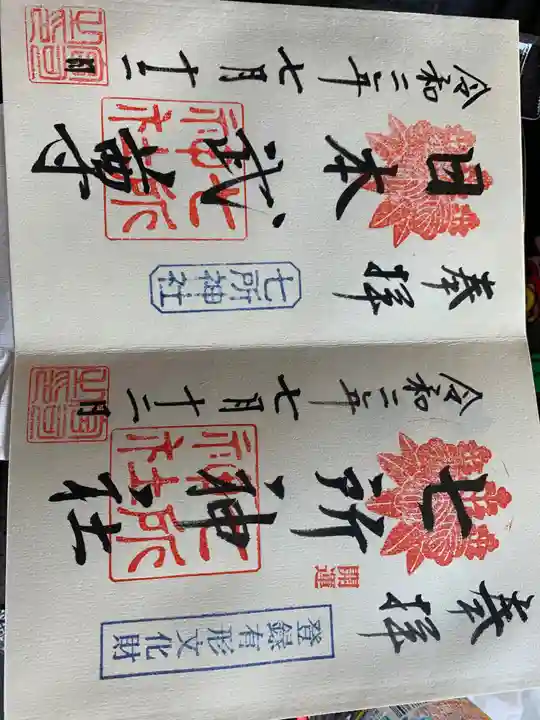 奉拝
登録有形文化財
開運
七所神社
七所神社
令和二年七月十二日
宮司之印
奉拝
七所神社
日本武尊
七所神社
令和二年七月十二日
宮司之印